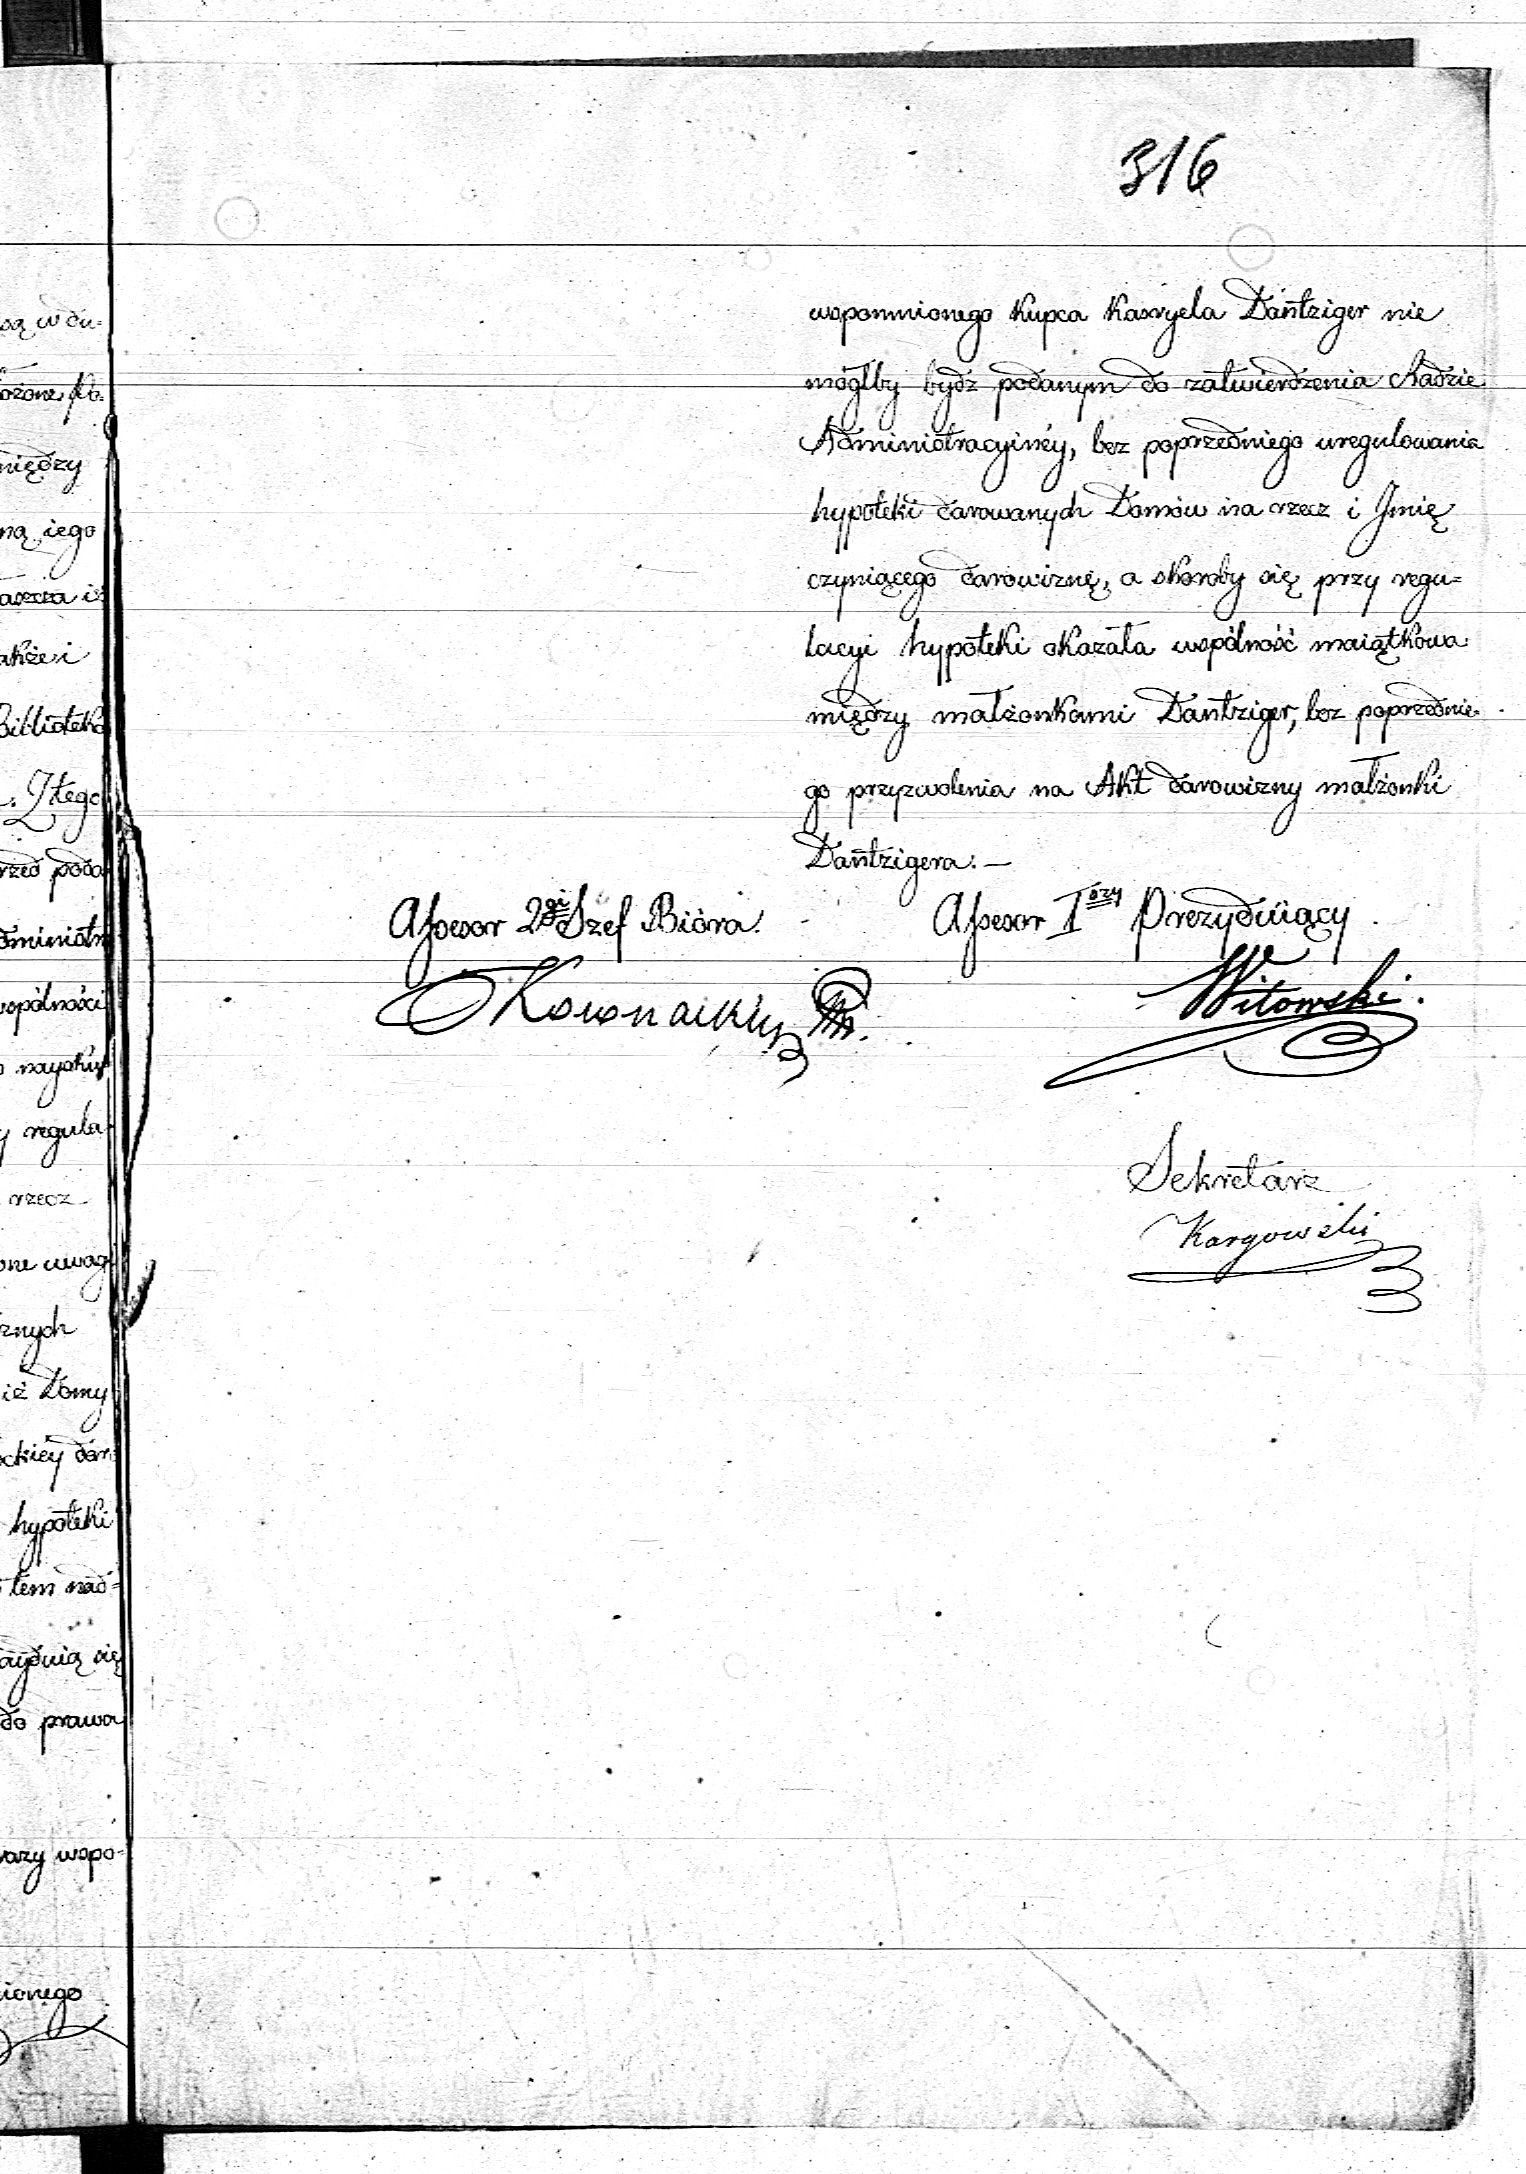 316
wspomnionego Kupca Kasryela Dantziger nie
mógłby bydz podanym do zatwierdzenia Radzie
Administracyinéy, bez poprzedniego uregulowania
hypoteki darowanych Domów na rzecz i Jmię
czyniącego darowiznę, a skoroby się przy regu=
lacyi hypoteki okazała wspólność maiątkowa
między małżonkami Dantziger, bez poprzednie-
go przyzwolenia na Akt darowizny małżonki
Dantzigera.—
Assesor 2gi Szef Bióra. Assesor Iszy Prezyduiący
Witowski.
Sekretarz
Kargowski
są w du-
ożone Po-
między
ną iego
akże i
Biblioteka
. Z tego
rzed poda
dministr
spólności
y regula-
rzecz
one uwagi
znych
iż Domy
hypoteki
tem nad=
do prawa
wspo=
ionego